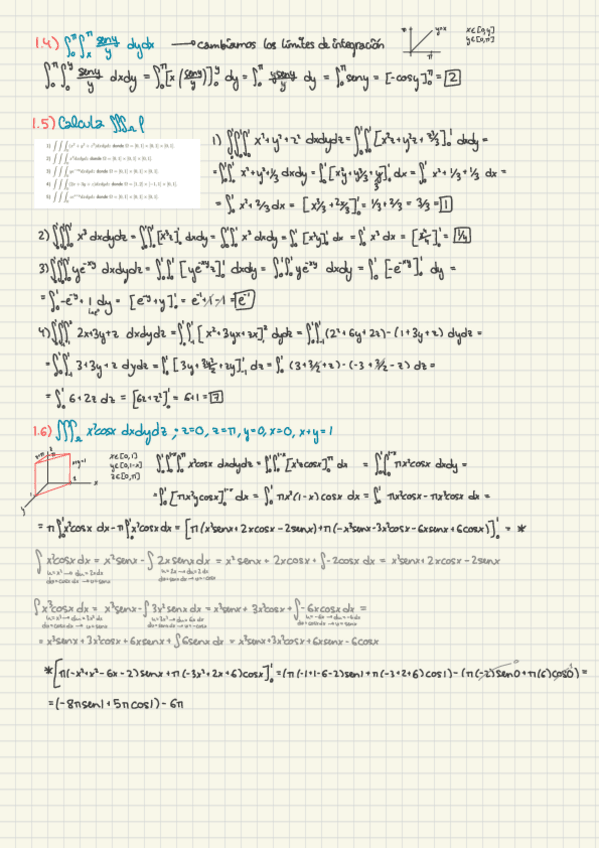 1.4) ∫₀^π ∫ₓ^π seny/y dydx → cambiamos los límites de integración y=x π π x∈[0,y] y∈[0,π]
∫₀^π ∫₀^y seny/y dxdy = ∫₀^π [x (seny/y)]₀^y dy = ∫₀^π yseny/y dy = ∫₀^π seny = [-cosy]₀^π = 2
1.5) Calcula ∫∫∫_Ω f
1) ∫₀¹∫₀¹∫₀¹ x²+y²+z² dxdydz = ∫₀¹∫₀¹ [x²z+y²z+z³/3]₀¹ dxdy =
= ∫₀¹∫₀¹ x²+y²+1/3 dxdy = ∫₀¹ [x²y+y³/3+y/3]₀¹ dx = ∫₀¹ x²+1/3+1/3 dx =
= ∫₀¹ x²+2/3 dx = [x³/3+2x/3]₀¹ = 1/3+2/3 = 3/3 = 1
2) ∫₀¹∫₀¹∫₀¹ x³ dxdydz = ∫₀¹∫₀¹ [x³z]₀¹ dxdy = ∫₀¹∫₀¹ x³ dxdy = ∫₀¹ [x³y]₀¹ dx = ∫₀¹ x³ dx = [x⁴/4]₀¹ = 1/4
3) ∫₀¹∫₀¹∫₀¹ ye^-xy dxdydz = ∫₀¹∫₀¹ [ye^-xy z]₀¹ dxdy = ∫₀¹∫₀¹ ye^-xy dxdy = ∫₀¹ [-e^-xy]₀¹ dy =
= ∫₀¹ -e^-y + 1 dy = [e^-y+y]₀¹ = e⁻¹+1-1 = e⁻¹
4) ∫₀¹∫₋₁¹∫₁² 2x+3y+z dxdydz = ∫₀¹∫₋₁¹ [x²+3yx+zx]₁² dydz = ∫₀¹∫₋₁¹ (2²+6y+2z)-(1+3y+z) dydz =
= ∫₀¹∫₋₁¹ 3+3y+z dydz = ∫₀¹ [3y+3y²/2+zy]₋₁¹ dz = ∫₀¹ (3+3/2+z)-(-3+3/2-z) dz =
= ∫₀¹ 6+2z dz = [6z+z²]₀¹ = 6+1 = 7
1.6) ∫∫∫_Ω x²cosx dxdydz ; z=0, z=π, y=0, x=0, x+y=1
x+y=1 x y z x∈[0,1] y∈[0,1-x] z∈[0,π]
∫₀¹∫₀^1-x∫₀^π x²cosx dxdydz = ∫₀¹∫₀^1-x [x²zcosx]₀^π dx = ∫₀¹∫₀^1-x πx²cosx dxdy =
= ∫₀¹ [πx²ycosx]₀^1-x dx = ∫₀¹ πx²(1-x) cosx dx = ∫₀¹ πx²cosx - πx³cosx dx =
= π∫₀¹ x²cosx dx - π∫₀¹ x³cosx dx = [π(x²senx+2xcosx-2senx)+π(-x³senx-3x²cosx-6xsenx+6cosx)]₀¹ = *
∫ x²cosx dx = x²senx - ∫ 2xsenx dx = x²senx + 2xcosx + ∫ -2cosx dx = x²senx + 2xcosx - 2senx
u=x² → du=2xdx u=2x → du=2dx
dv=cosxdx → v=senx dv=senxdx → v=-cosx
∫ x³cosx dx = x³senx - ∫ 3x²senx dx = x³senx + 3x²cosx + ∫ -6xcosx dx =
u=x³ → du=3x²dx u=3x² → du=6xdx u=-6x → du=-6dx
dv=cosxdx → v=senx dv=senxdx → v=-cosx dv=cosxdx → v=senx
= x³senx + 3x²cosx + 6xsenx + ∫ 6senx dx = x³senx+3x²cosx+6xsenx-6cosx
* [π(-x³+x²-6x-2)senx+π(-3x²+2x+6)cosx]₀¹ = (π(-1+1-6-2)sen1+π(-3+2+6)cos1) - (π(-2)sen0+π(6)cos0) =
= (-8πsen1+5πcos1) - 6π